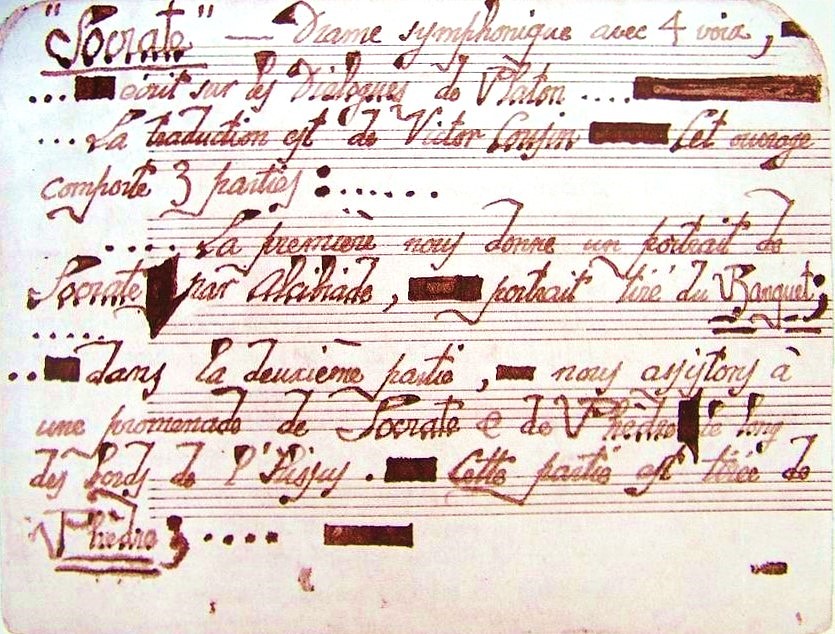 "Socrate" — Drame symphonique avec 4 voix,
... écrit sur des Dialogues de Platon ....
... La traduction est de Victor Cousin Cet ouvrage
comporte 3 parties : ......
.... La première nous donne un portrait de
Socrate par Alcibiade, portrait tiré du Banquet;
.....
.. dans la deuxième partie, nous assistons à
une promenade de Socrate & de Phèdre le long
des bords de l'Ilissus. Cette partie est tirée de
Phèdre; .....